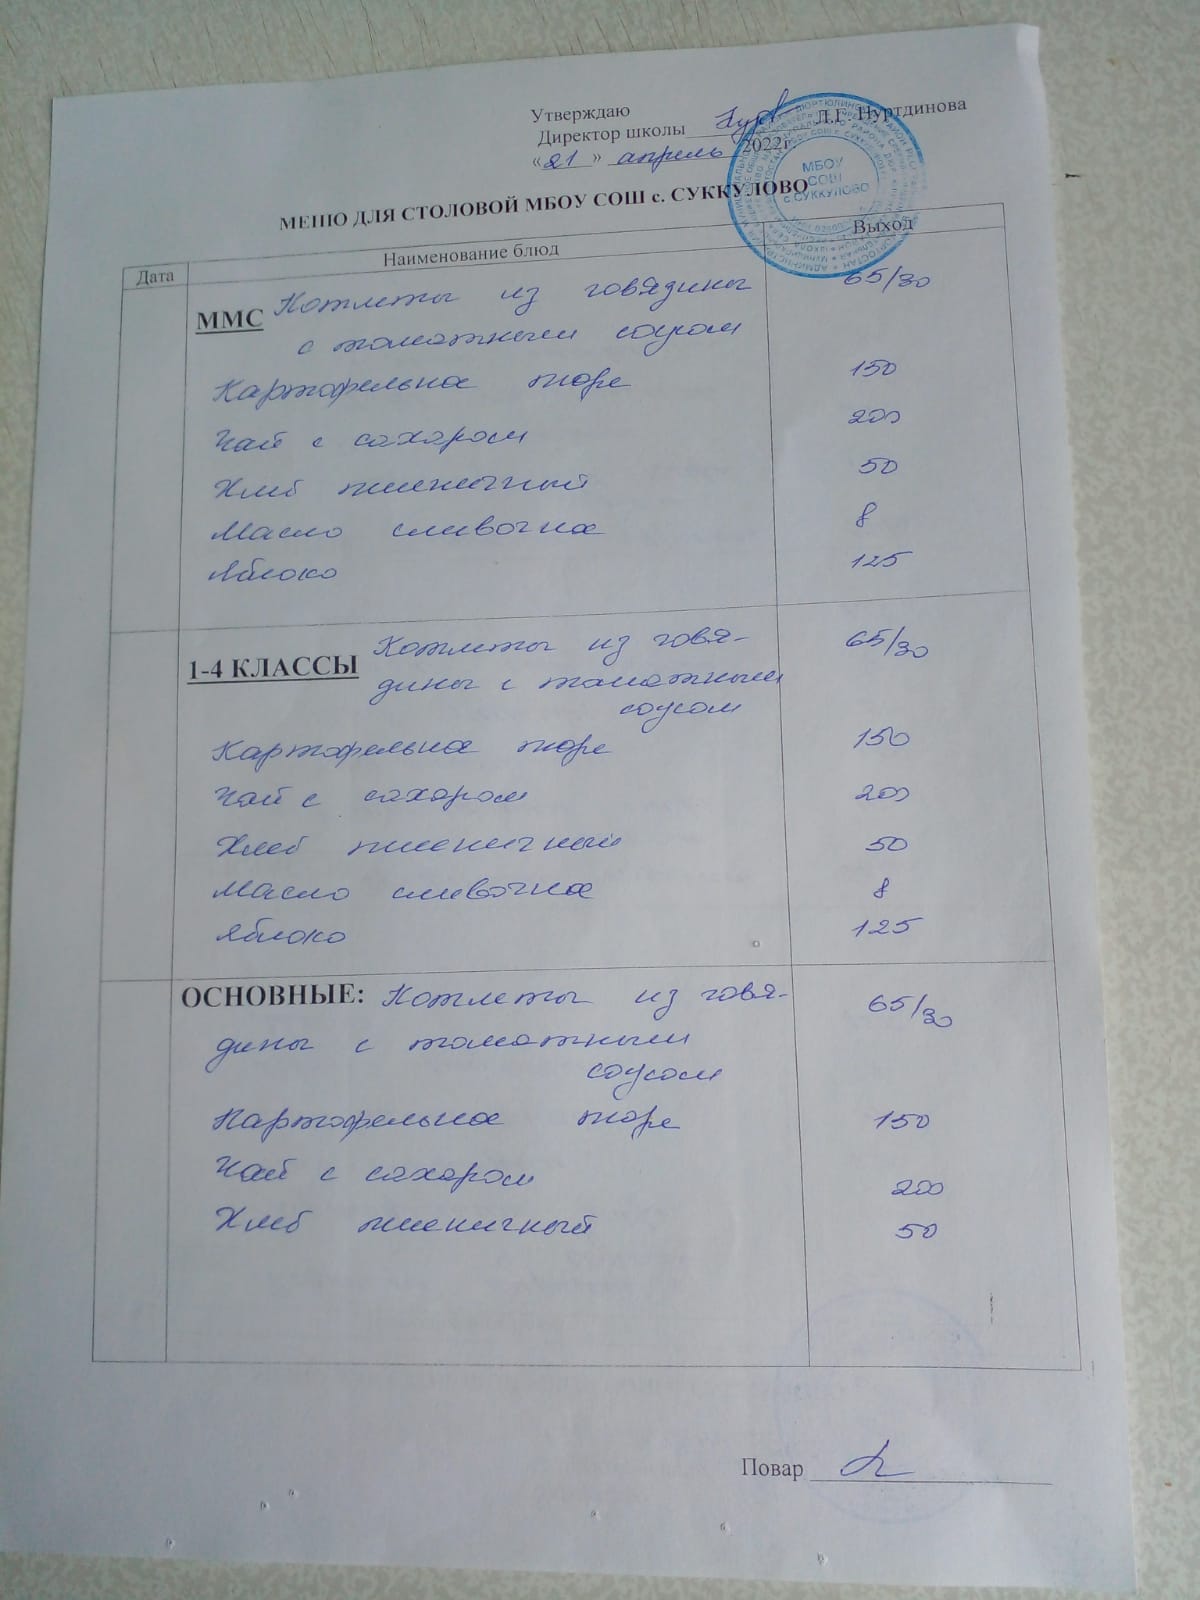 Утверждаю
Директор школы Л.Г. Нуртдинова
«21» апрель 2022г.
МБОУ
СОШ
с.СУККУЛОВО
МЕНЮ ДЛЯ СТОЛОВОЙ МБОУ СОШ с. СУККУЛОВО
Дата Наименование блюд Выход
ММС Котлеты из говядины 65/30
с томатным соусом
Картофельное пюре 150
Чай с сахаром 200
Хлеб пшеничный 50
Масло сливочное 8
Яблоко 125
1-4 КЛАССЫ Котлеты из говя- 65/30
дины с томатным
соусом
Картофельное пюре 150
Чай с сахаром 200
Хлеб пшеничный 50
Масло сливочное 8
Яблоко 125
ОСНОВНЫЕ: Котлеты из говя- 65/30
дины с томатным
соусом
Картофельное пюре 150
Чай с сахаром 200
Хлеб пшеничный 50
Повар